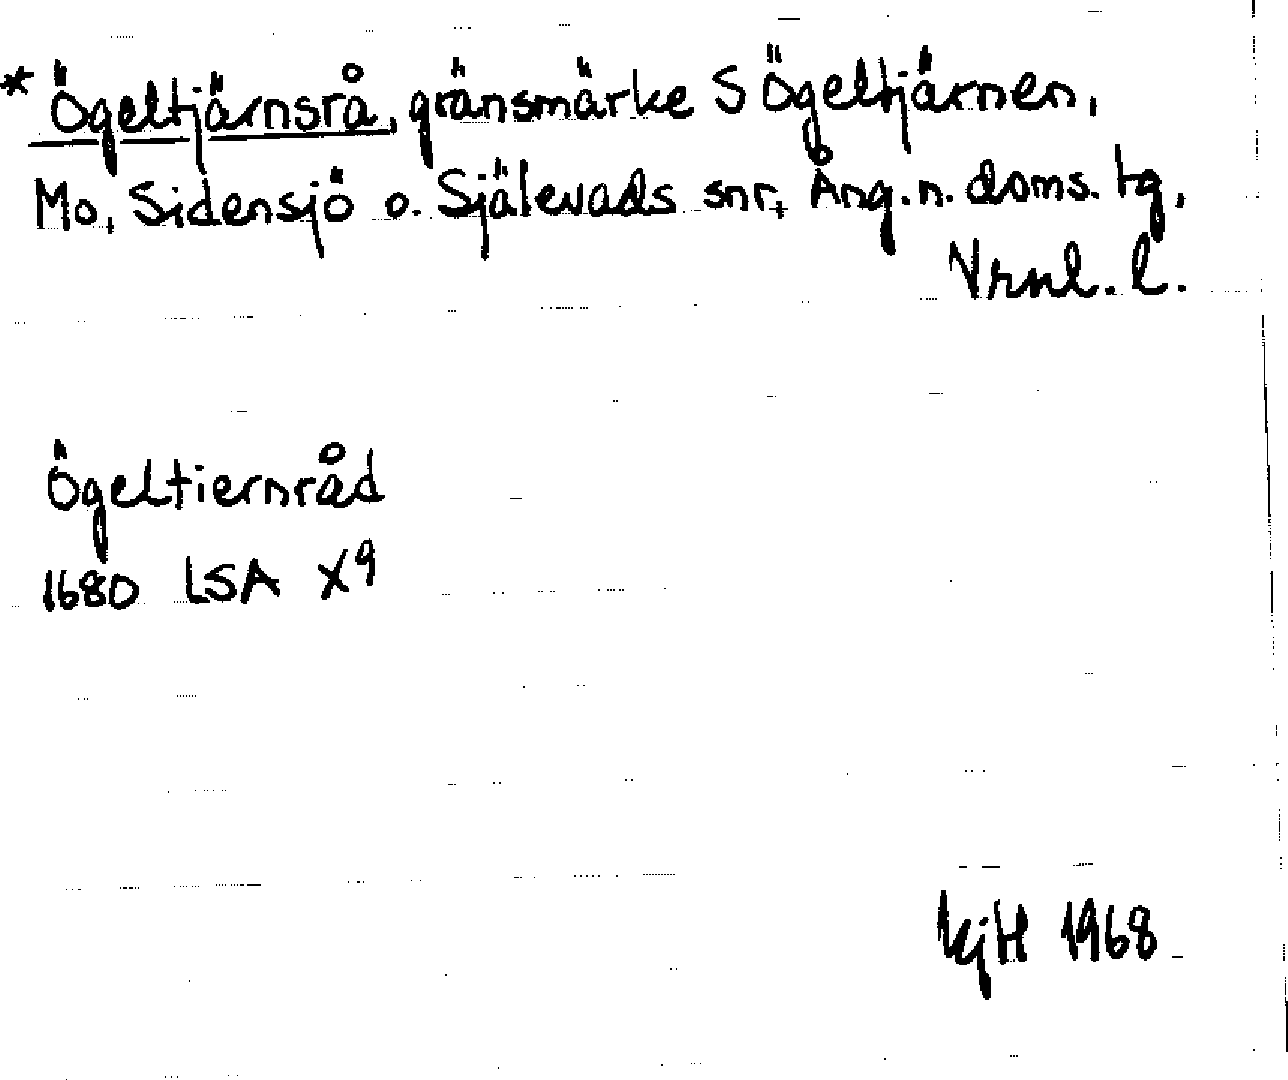 * Ögeltjärnsrå, gränsmärke S Ögeltjärnen,
Mo, Sidensjö o. Själevads snr, Ång. n. doms. tg,
Vrnl. l.
Ögeltiernråd
1680 LSA X9
KjH 1968